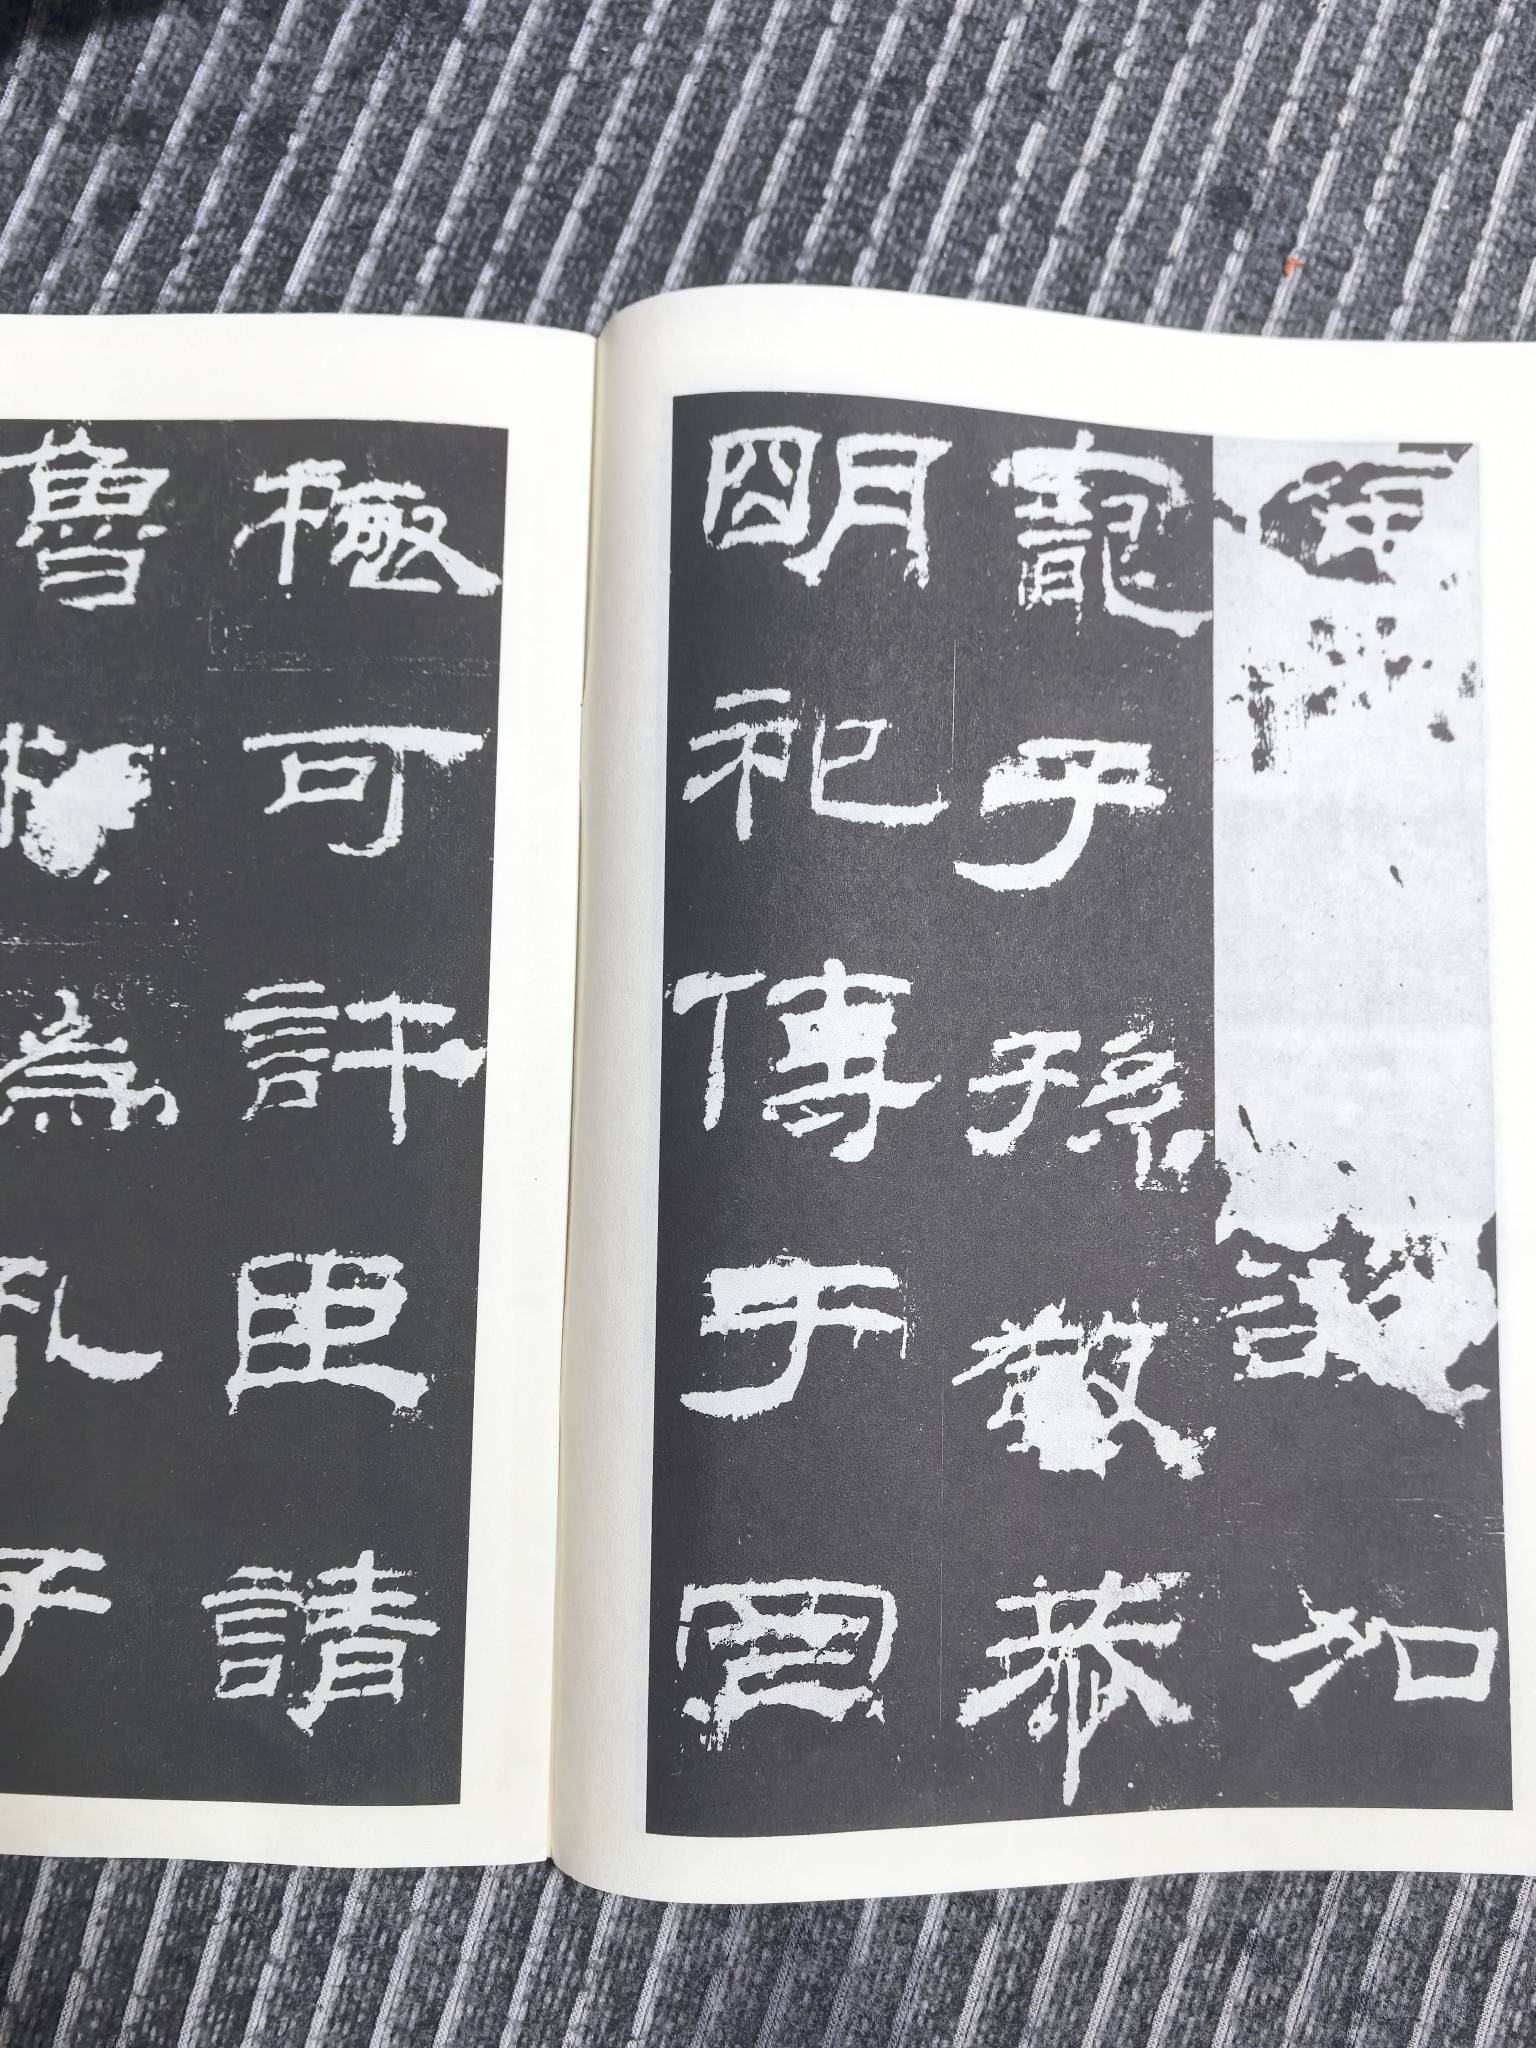 加
寵子孫敬恭
明祀傳于罔
極可許臣請
魯相為孔子